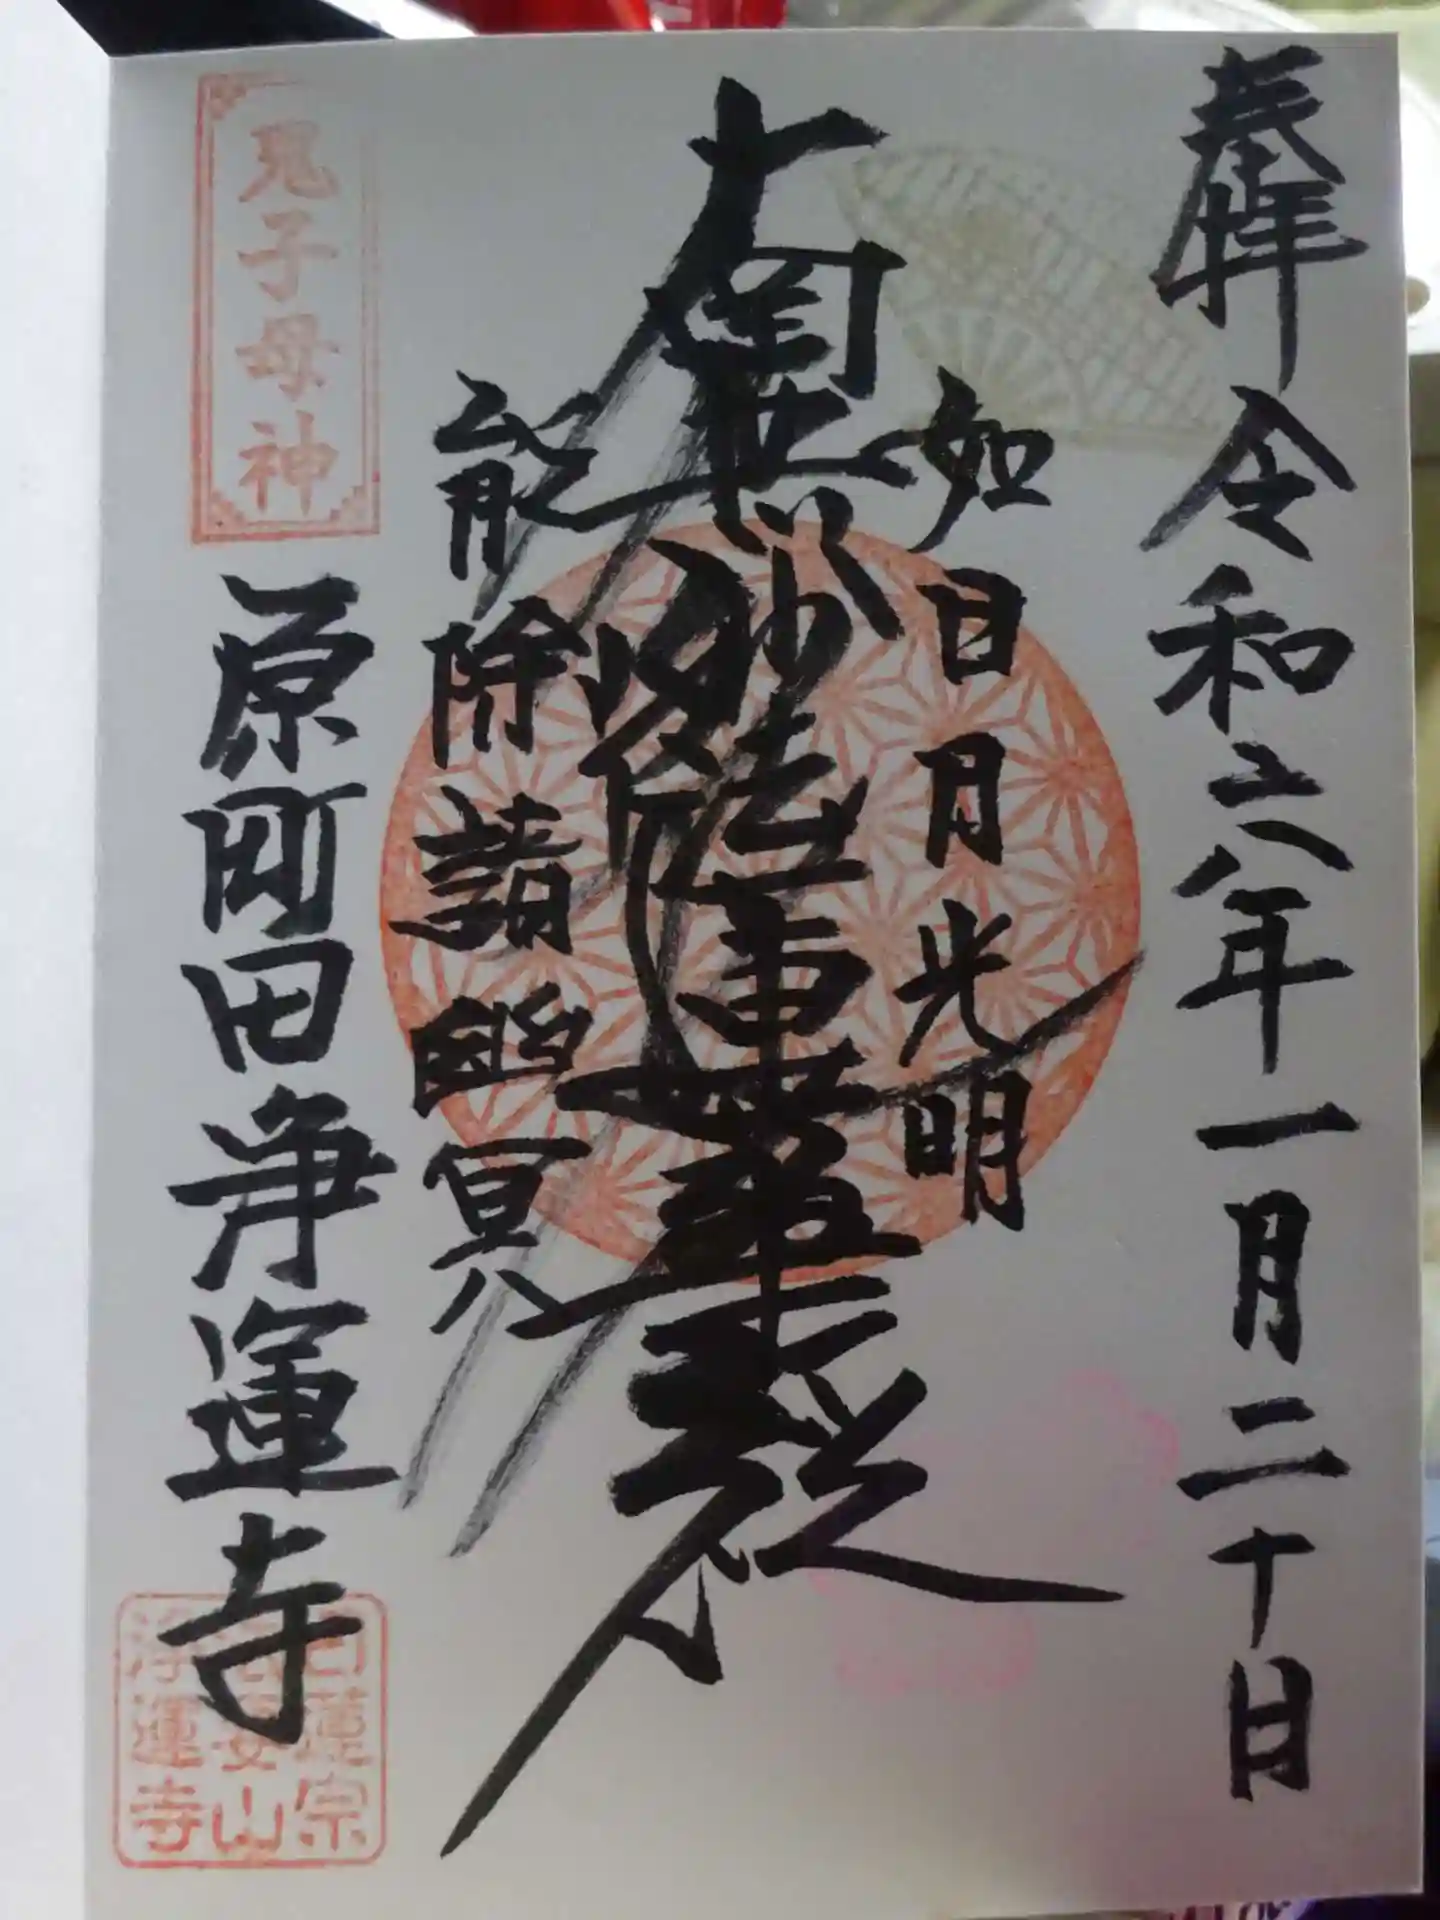 奉拝
令和六年一月二十日
如日月光明
南無妙法蓮華経
能除諸幽冥
鬼子母神
原町田浄運寺
日蓮宗
法要山
浄運寺